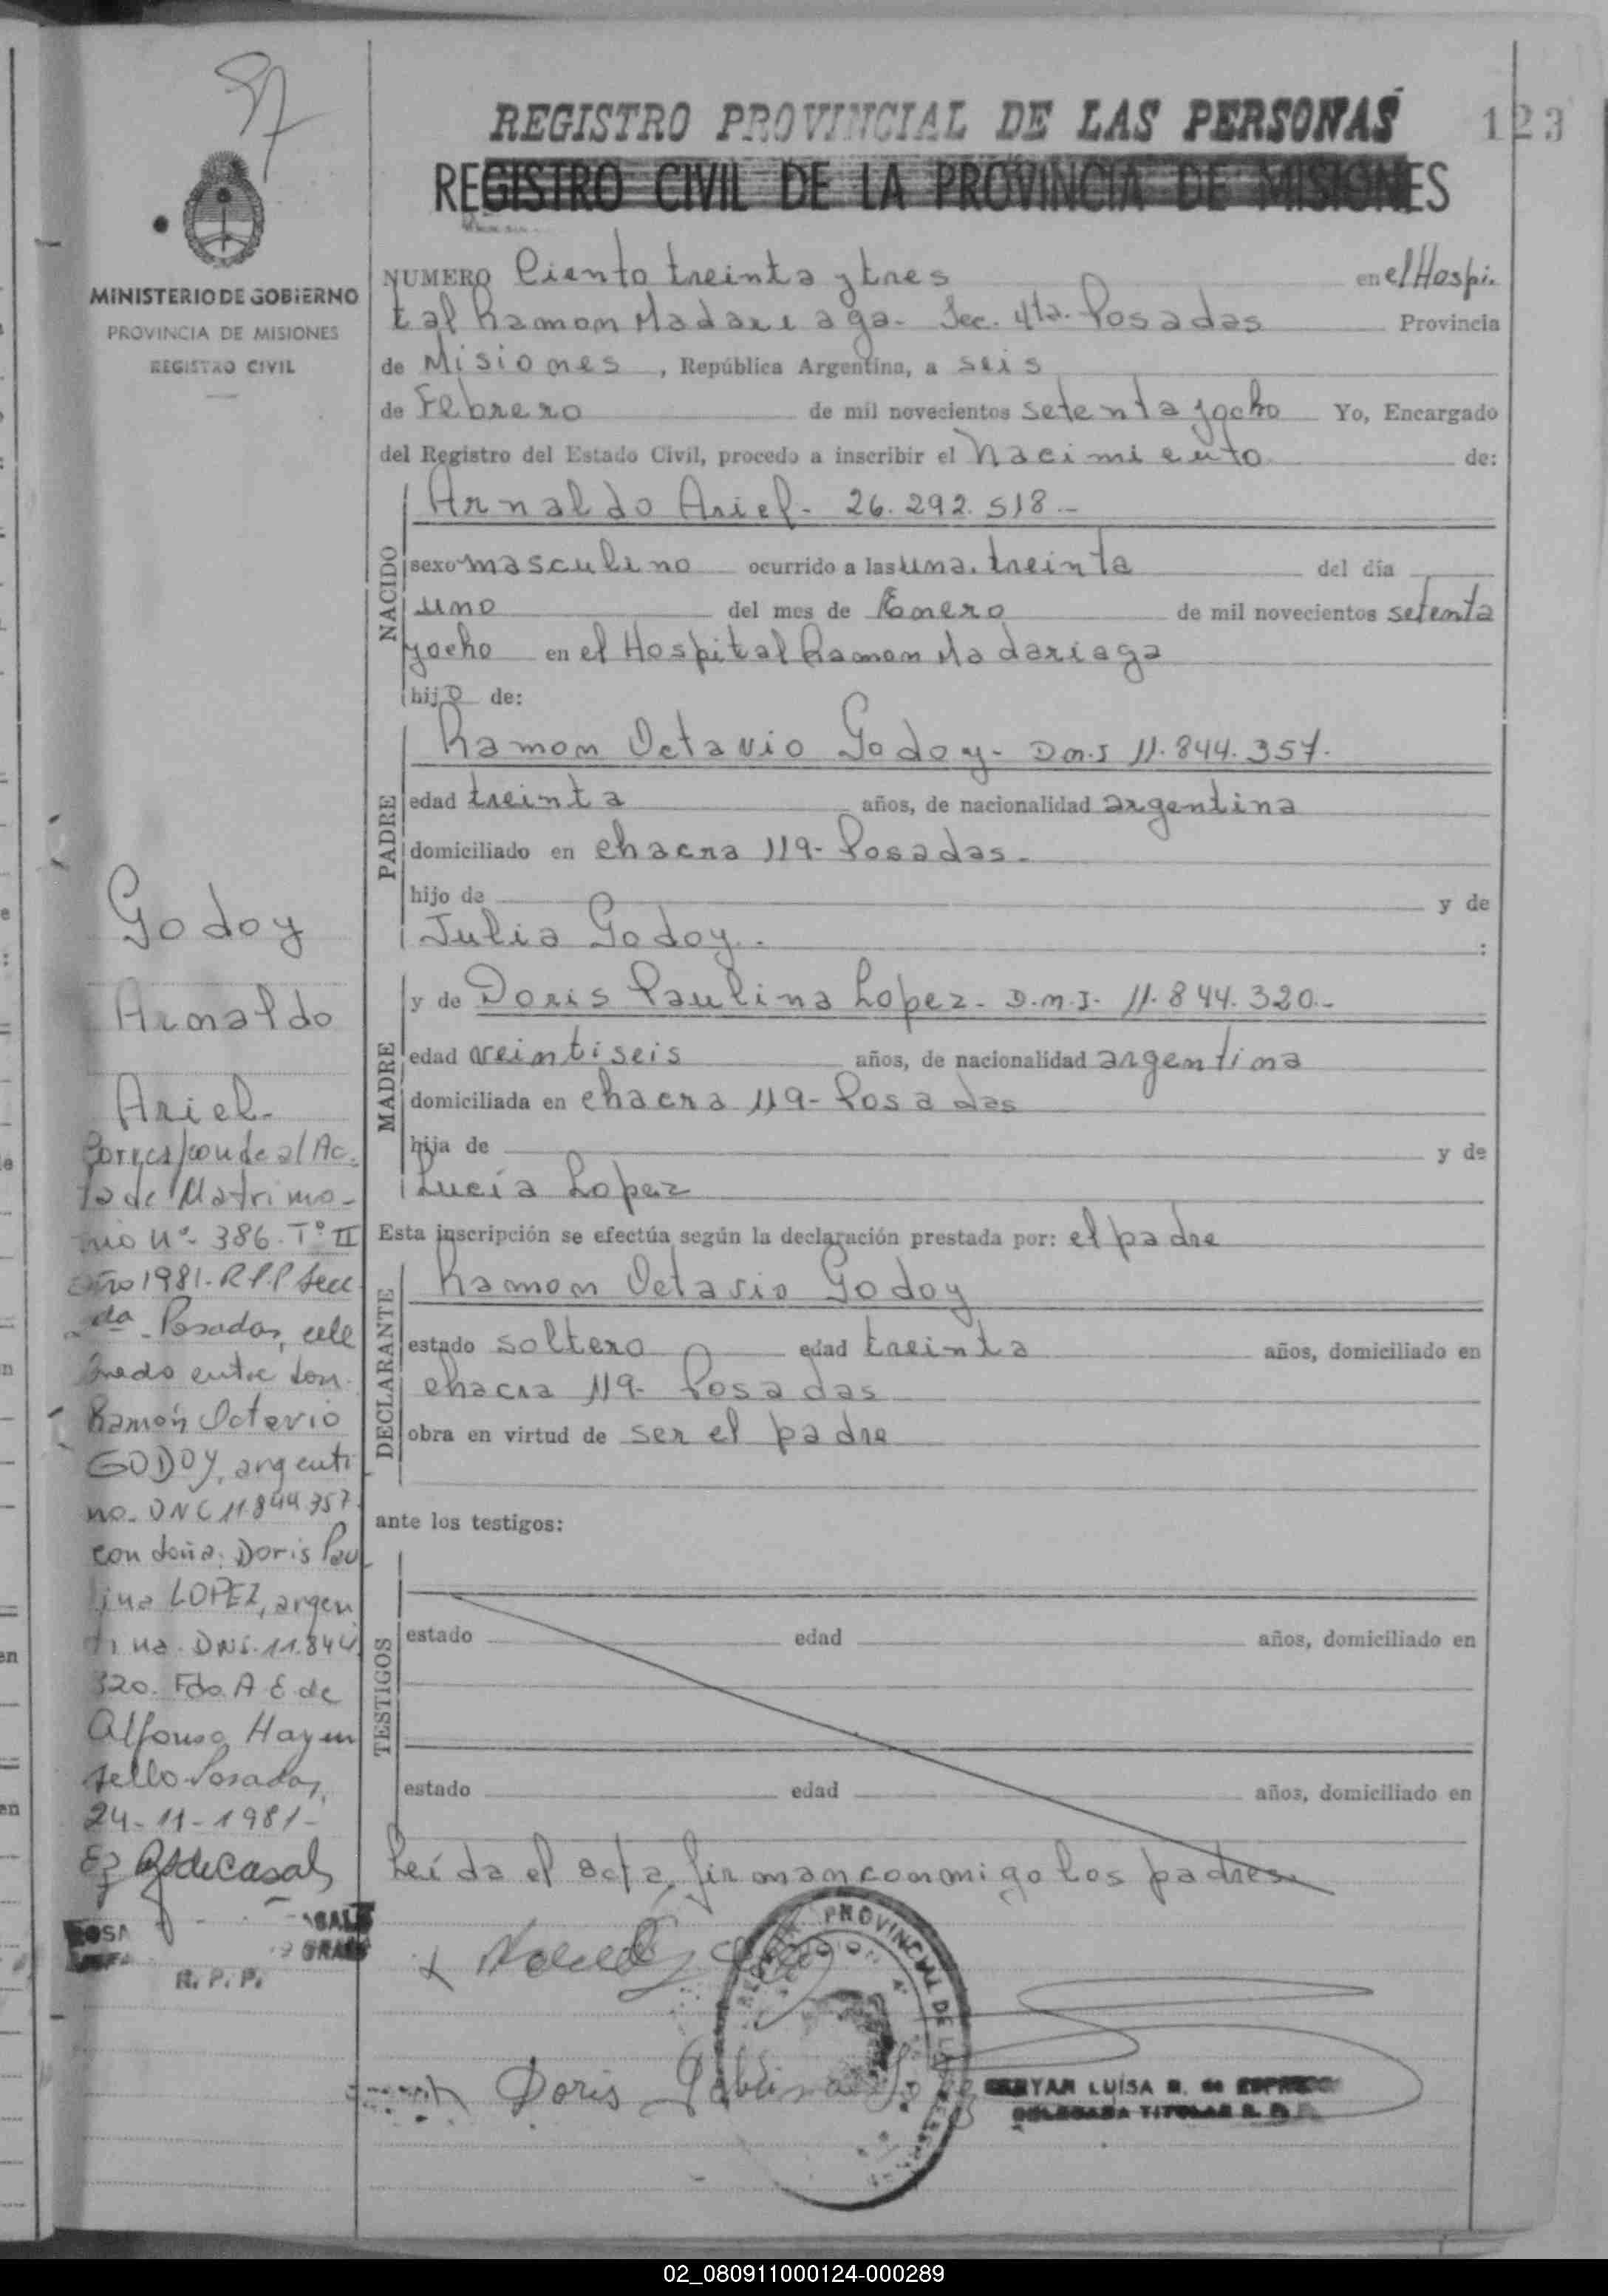 87
REGISTRO PROVINCIAL DE LAS PERSONAS
123
REGISTRO CIVIL DE LA PROVINCIA DE MISIONES
MINISTERIO DE GOBIERNO
PROVINCIA DE MISIONES
REGISTRO CIVIL
NUMERO Ciento treinta y tres en el Hospi.
tal Ramon Madariaga - Sec. 4ta. Posadas Provincia
de Misiones, República Argentina, a seis
de Febrero de mil novecientos setenta y ocho Yo, Encargado
del Registro del Estado Civil, procedo a inscribir el Nacimiento de:
NACIDO
Arnaldo Ariel - 26.292.518 -
sexo masculino ocurrido a las una. treinta del día
uno del mes de Enero de mil novecientos setenta
y ocho en el Hospital Ramon Madariaga
hijo de:
PADRE
Ramon Octavio Godoy - D.N.I 11.844.357.
edad treinta años, de nacionalidad argentina
domiciliado en chacra 119 - Posadas -
hijo de y de
Julia Godoy. :
MADRE
y de Doris Paulina Lopez - D.N.I. 11.844.320 -
edad veintiseis años, de nacionalidad argentina
domiciliada en chacra 119 - Posadas
hija de y de
Lucia Lopez
Esta inscripción se efectúa según la declaración prestada por: el padre
DECLARANTE
Ramon Octavio Godoy
estado soltero edad treinta años, domiciliado en
chacra 119 - Posadas
obra en virtud de ser el padre
ante los testigos:
TESTIGOS
estado edad años, domiciliado en
estado edad años, domiciliado en
Leída el acta, firman conmigo los padres
Doris
REGISTRO PROVINCIAL DE LAS PERSONAS
LUISA R. de
DELEGADA TITULAR R. P. P.
Godoy
Arnaldo
Ariel -
Corresponde al Ac.
ta de Matrimo-
nio Nº 386. Tº II
año 1981 - R.P.P Secc
2da - Posadas, cele
brado entre don
Ramón Octavio
GODOY, argenti
no - DNI 11.844.357
con doña: Doris Pau
lina LOPEZ, argen
tina - DNI. 11.844.
320. Fdo. A E de
Alfonso Hay un
sello Posadas,
24-11-1981-
R. P. P.
02_080911000124-000289